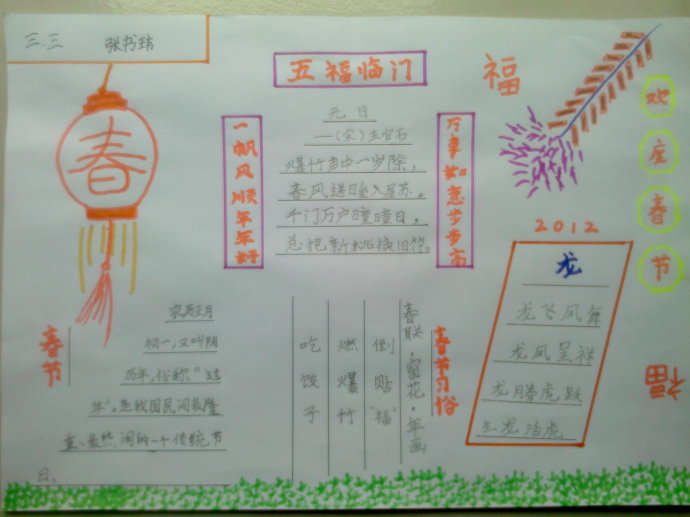 三.三 张书琪
五福临门
福
欢度春节
春
一帆风顺年年好
万事如意步步高
元日
——(宋)王安石
爆竹声中一岁除，
春风送日入屠苏。
千门万户瞳瞳日，
总把新桃换旧符。
2012
龙
龙飞凤舞
龙凤呈祥
龙腾虎跃
生龙活虎
福
春节
农历正月
初一，又叫阴
历年，俗称“过
年”。是我国民间最隆
重、最热闹的一个传统节
日。
春节习俗
春联·窗花·年画
倒贴“福”
燃爆竹
吃饺子